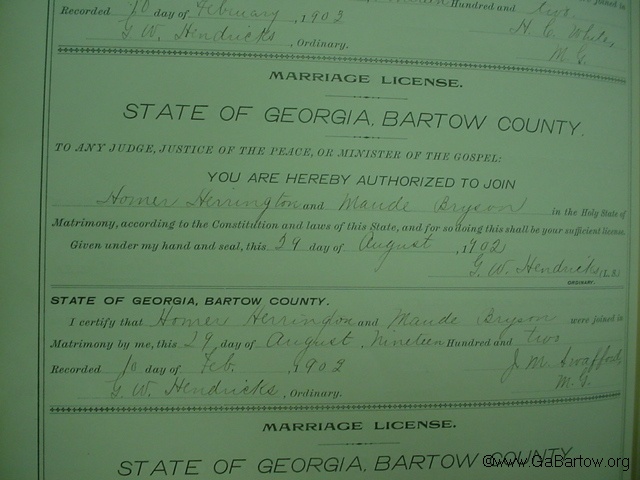 Hundred and two
Recorded 10 day of February, 1902
H. E. White,
G. W. Hendricks, Ordinary.
M. G.
MARRIAGE LICENSE.
STATE OF GEORGIA, BARTOW COUNTY.
TO ANY JUDGE, JUSTICE OF THE PEACE, OR MINISTER OF THE GOSPEL:
YOU ARE HEREBY AUTHORIZED TO JOIN
Homer Herrington and Maude Bryson in the Holy State of
Matrimony, according to the Constitution and laws of this State, and for so doing this shall be your sufficient license.
Given under my hand and seal, this 29 day of August, 1902
G. W. Hendricks (L.S.)
ORDINARY.
STATE OF GEORGIA, BARTOW COUNTY.
I certify that Homer Herrington and Maude Bryson were joined in
Matrimony by me, this 29 day of August, Nineteen Hundred and two
Recorded 10 day of Feb. 1902
J. M. Swafford
G. W. Hendricks, Ordinary.
M. G.
MARRIAGE LICENSE.
STATE OF GEORGIA, BARTOW COUNTY.
©www.GaBartow.org